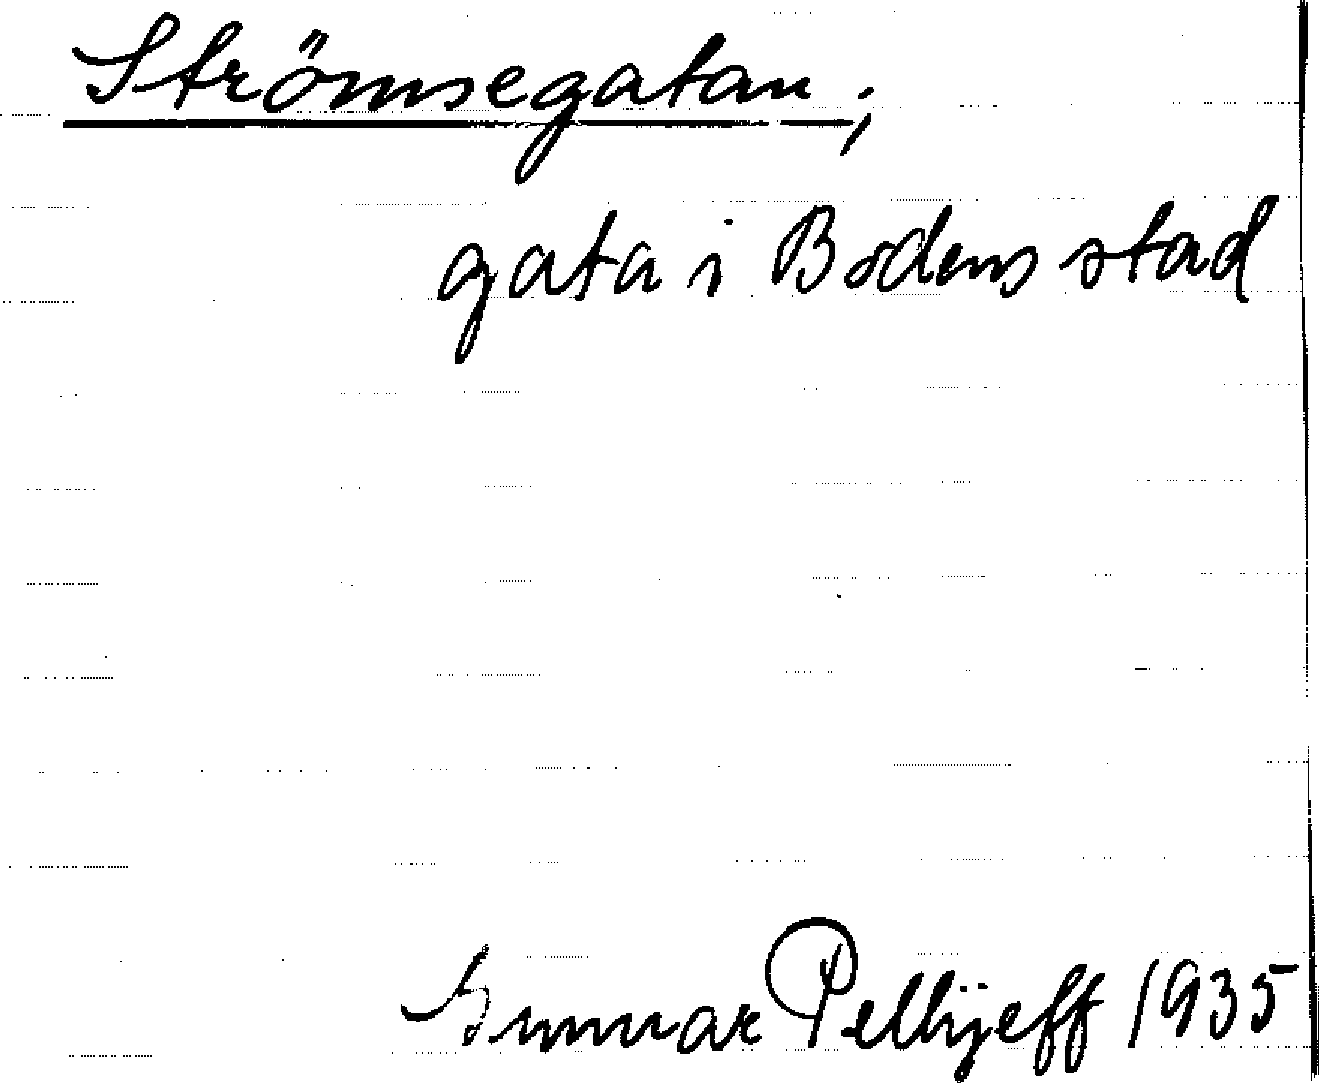 Strömsegatan;
gata i Bodens stad
Gunnar Pellijeff 1935